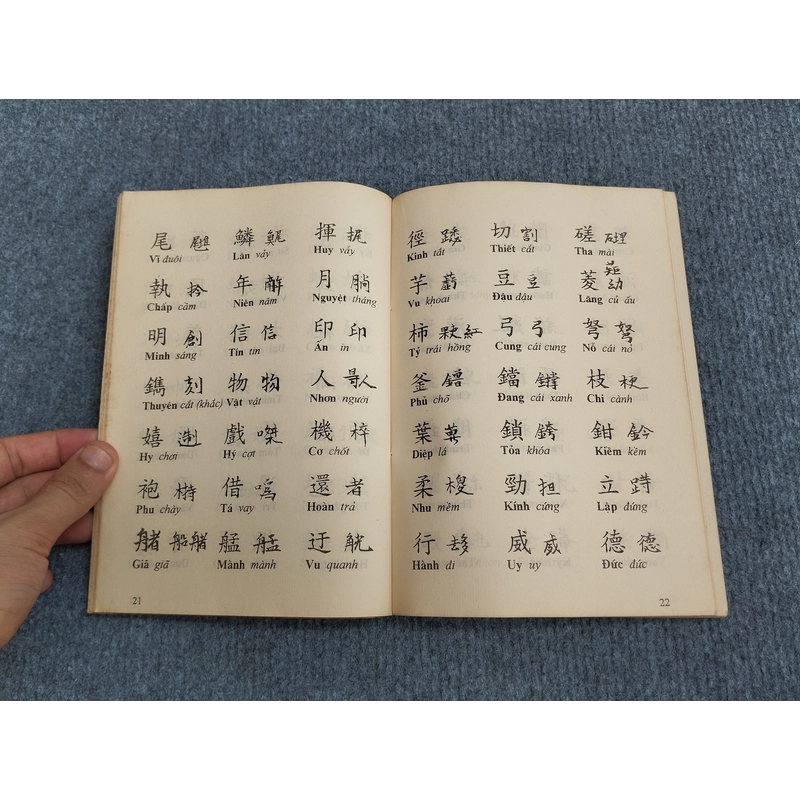 尾 鱗 揮
Vĩ đuôi Lân vảy Huy vẩy
執 扲 年 月
Chấp cầm Niên năm Nguyệt tháng
明 創 信 信 印 印
Minh sáng Tín tin Ấn in
鐫 刻 物 物 人
Thuyên cắt (khắc) Vật vật Nhơn người
嬉 戲 機 椊
Hy chơi Hý cợt Cơ chốt
袍 借 嗚 還 者
Phu chày Tá vay Hoàn trả
艍 船 艋 艋 迂
Giã giã Mành mành Vu quanh
21
徑 切 割 磋
Kinh tắt Thiết cắt Tha mài
芋 豆 豆 菱
Vu khoai Đậu đậu Lăng củ ấu
柿 紅 弓 弓 弩 弩
Tỷ trái hồng Cung cái cung Nỗ cái nỏ
釜 鐺 枝 梗
Phủ chõ Đang cái xanh Chi cành
葉 鎖 銙 鉗 鈐
Diệp lá Tỏa khóa Kiềm kềm
柔 勁 担 立
Nhu mềm Kính cứng Lập đứng
行 威 威 德 德
Hành đi Uy uy Đức đức
22